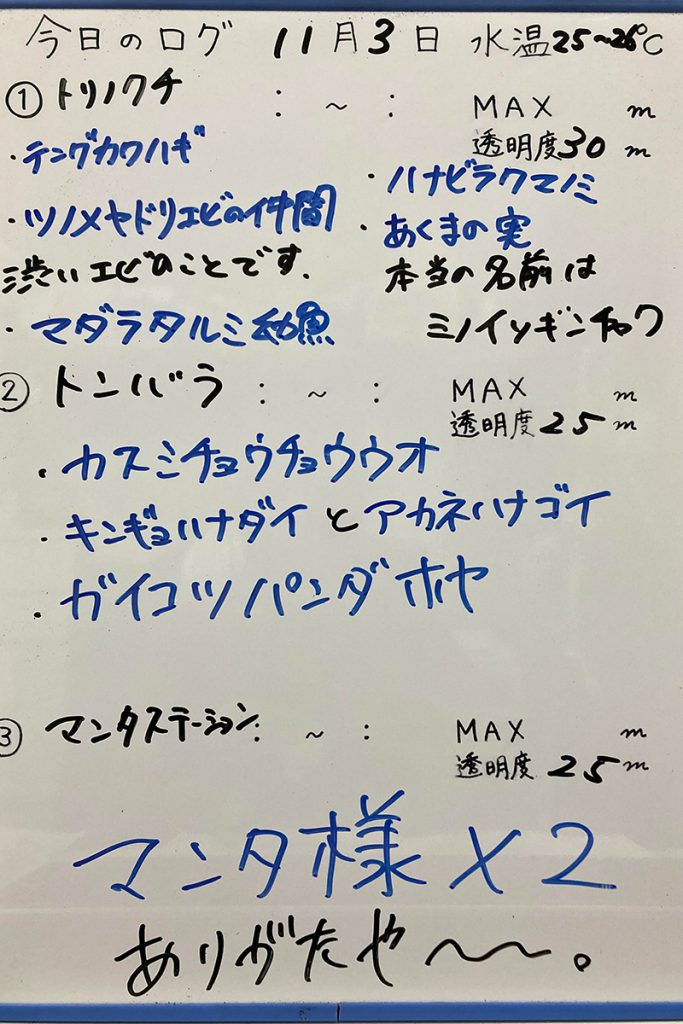 今日のログ 11月3日 水温25~26℃
① トリノクチ : ~ : MAX m
透明度30m
・テングカワハギ
・ハナビラクマノミ
・ツノメヤドリエビの仲間
・あくまの実
渋いエビのことです.
本当の名前は
・マダラタルミ幼魚
ミノイソギンチャク
② トンバラ : ~ : MAX m
透明度25m
・カスミチョウチョウウオ
・キンギョハナダイとアカネハナゴイ
・ガイコツパンダホヤ
③ マンタステーション : ~ : MAX m
透明度25m
マンタ様×2
ありがたや〜〜。